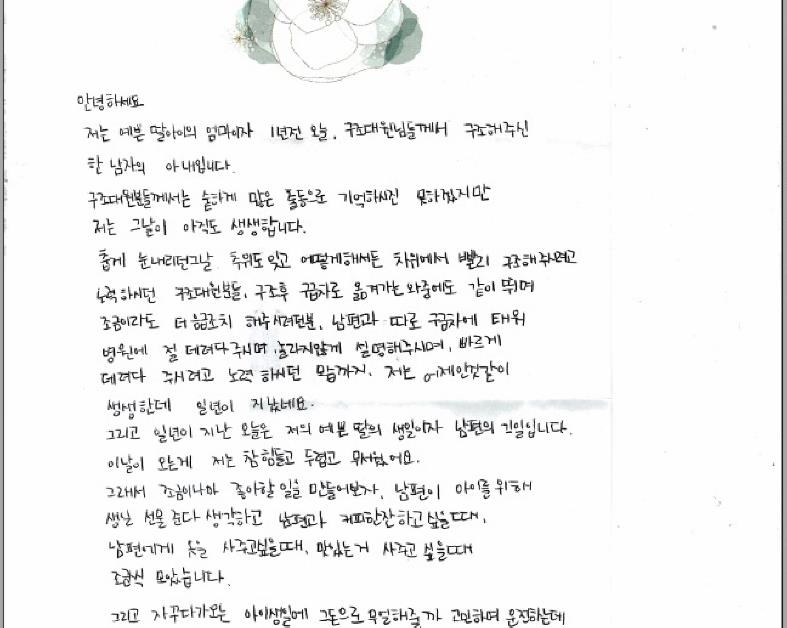 안녕하세요
저는 예쁜 딸아이의 엄마이자 1년전 오늘, 구조대원님들께서 구조해주신
한 남자의 아내입니다.
구조대원분들께서는 숱하게 많은 출동으로 기억하시진 못하겠지만
저는 그날이 아직도 생생합니다.
춥게 눈내리던그날 추위도 잊고 어떻게해서든 차위에서 빨리 구조해주시려고
노력하시던 구조대원분들, 구조후 구급차로 옮겨가는 와중에도 같이 뛰며
조금이라도 더 응급조치 해주시려던분, 남편과 따로 구급차에 태워
병원에 절 데려다주시며, 놀라지않게 설명해주시며, 빠르게
데려다 주시려고 노력하시던 모습까지. 저는 어제인것같이
생생한데 일년이 지났네요.
그리고 일년이 지난 오늘은 저의 예쁜 딸의 생일이자 남편의 기일입니다.
이날이 오는게 저는 참 힘들고 두렵고 무서웠어요.
그래서 조금이나마 좋아할 일을 만들어보자, 남편이 아이를 위해
생일 선물 준다 생각하고 남편과 커피한잔하고 싶을때,
남편에게 옷을 사주고싶을때, 맛있는거 사주고 싶을때
조금씩 모았습니다.
그리고 자꾸다가오는 아이생일에 그돈으로 무얼해줄까 고민하며 운전하는데